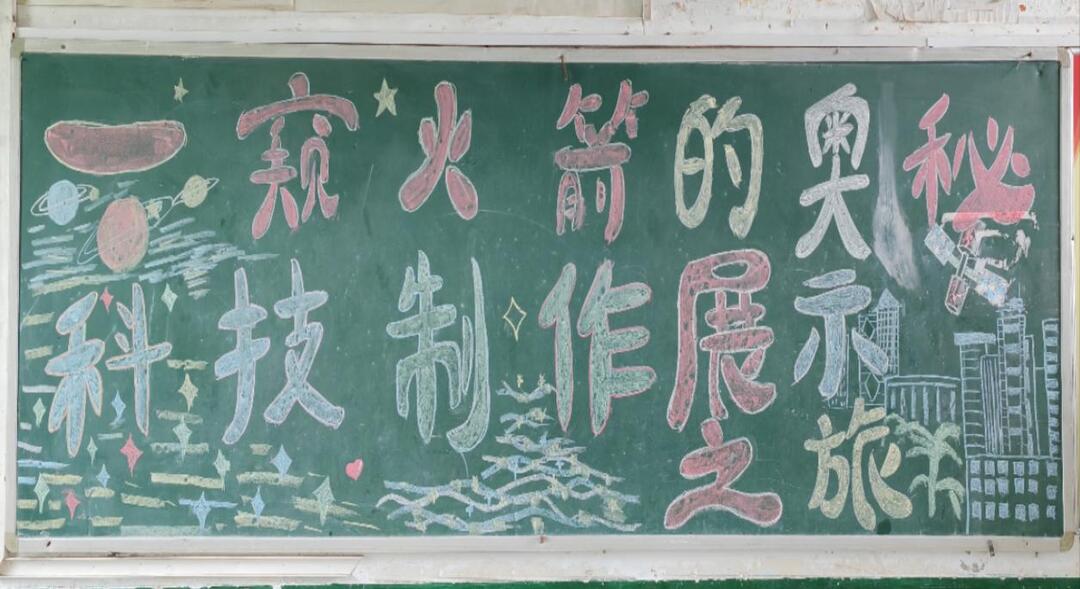 一窥火箭的奥秘
科技制作展示
之旅